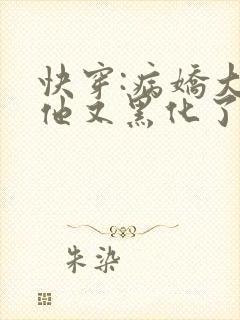 快穿:病娇大
他又黑化了
朱染